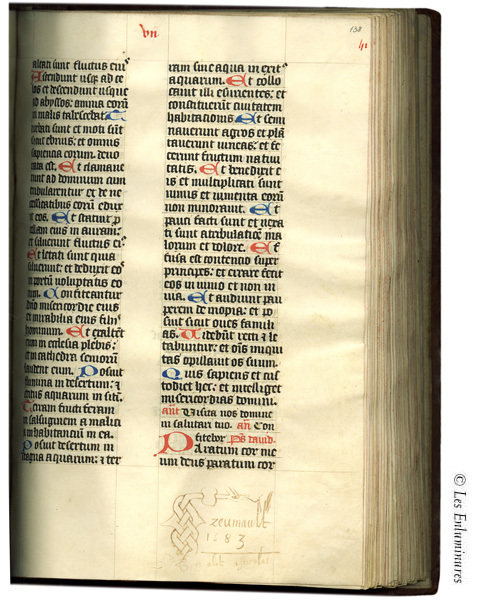 vii
138
altati sunt fluctus eiꝰ
Ascendunt usqꝫ ad ce
los et descendunt usque
ad abyssos: anima eorū
in malis tabescebat. T
urbati sunt et moti sūt
sicut ebrius: et omnis
sapiencia eorum devo
rata est. Et clamave
runt ad dominum cum
tribularentur et de ne
cessitatibus eorū eduxi
t eos. Et statuit p
cellam eius in auram:
et siluerunt fluctus eiꝰ
Et letati sunt quia
siluerunt: et deduxit eos
in portū voluptatis eo
rum. Confiteantur
dn̄o misericordie eius
et mirabilia eius filiis
hominum. Et exaltēt
eum in ecclesia plebis:
et in cathedra seniorū
laudent eum. Posuit
flumina in desertum: ⁊
exitus aquarum in sitī.
Terram fructiferam
in salsuginem a malici
a inhabitanciū in ea.
Posuit desertum in
stagna aquarum: ⁊ ter
ram sine aqua in exitꝰ
aquarum. Et collo
cavit illi esurientes: et
constituerūt civitatem
habitacionis. Et semi
naverunt agros et plā
taverunt vineas: et fe
cerunt fructum nativi
tatis. Et benedixit e
is et multiplicati sunt
nimis et iumenta eorū
non minoravit. Et
pauci facti sunt et vexa
ti sunt a tribulacōe ma
lorum et dolore. Eff
usa est contencio super
principes: et errare fecit
eos in invio et non in
via. Et adiuvit pau
perem de inopia: et po
suit sicut oves famili
as. Videbūt recti ⁊ le
tabuntur: et oīs iniqui
tas opilavit os suum.
Quis sapiens et cus
todiet hec: et intelliget
misericordias domini.
añt Visita nos domine
in salutari tuo. añ Con
fitebor Ps̄ david.
Paratum cor me
um deus paratum cor
zeumault
1583
© Les Enluminures